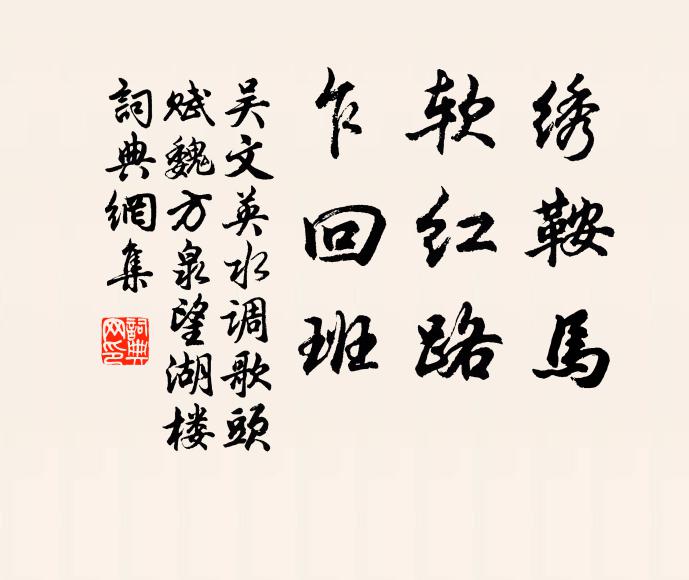 绣鞍馬
软红路
乍回班
吴文英水调歌頭
赋魏方泉望湖楼
詞典網集
詞典网印